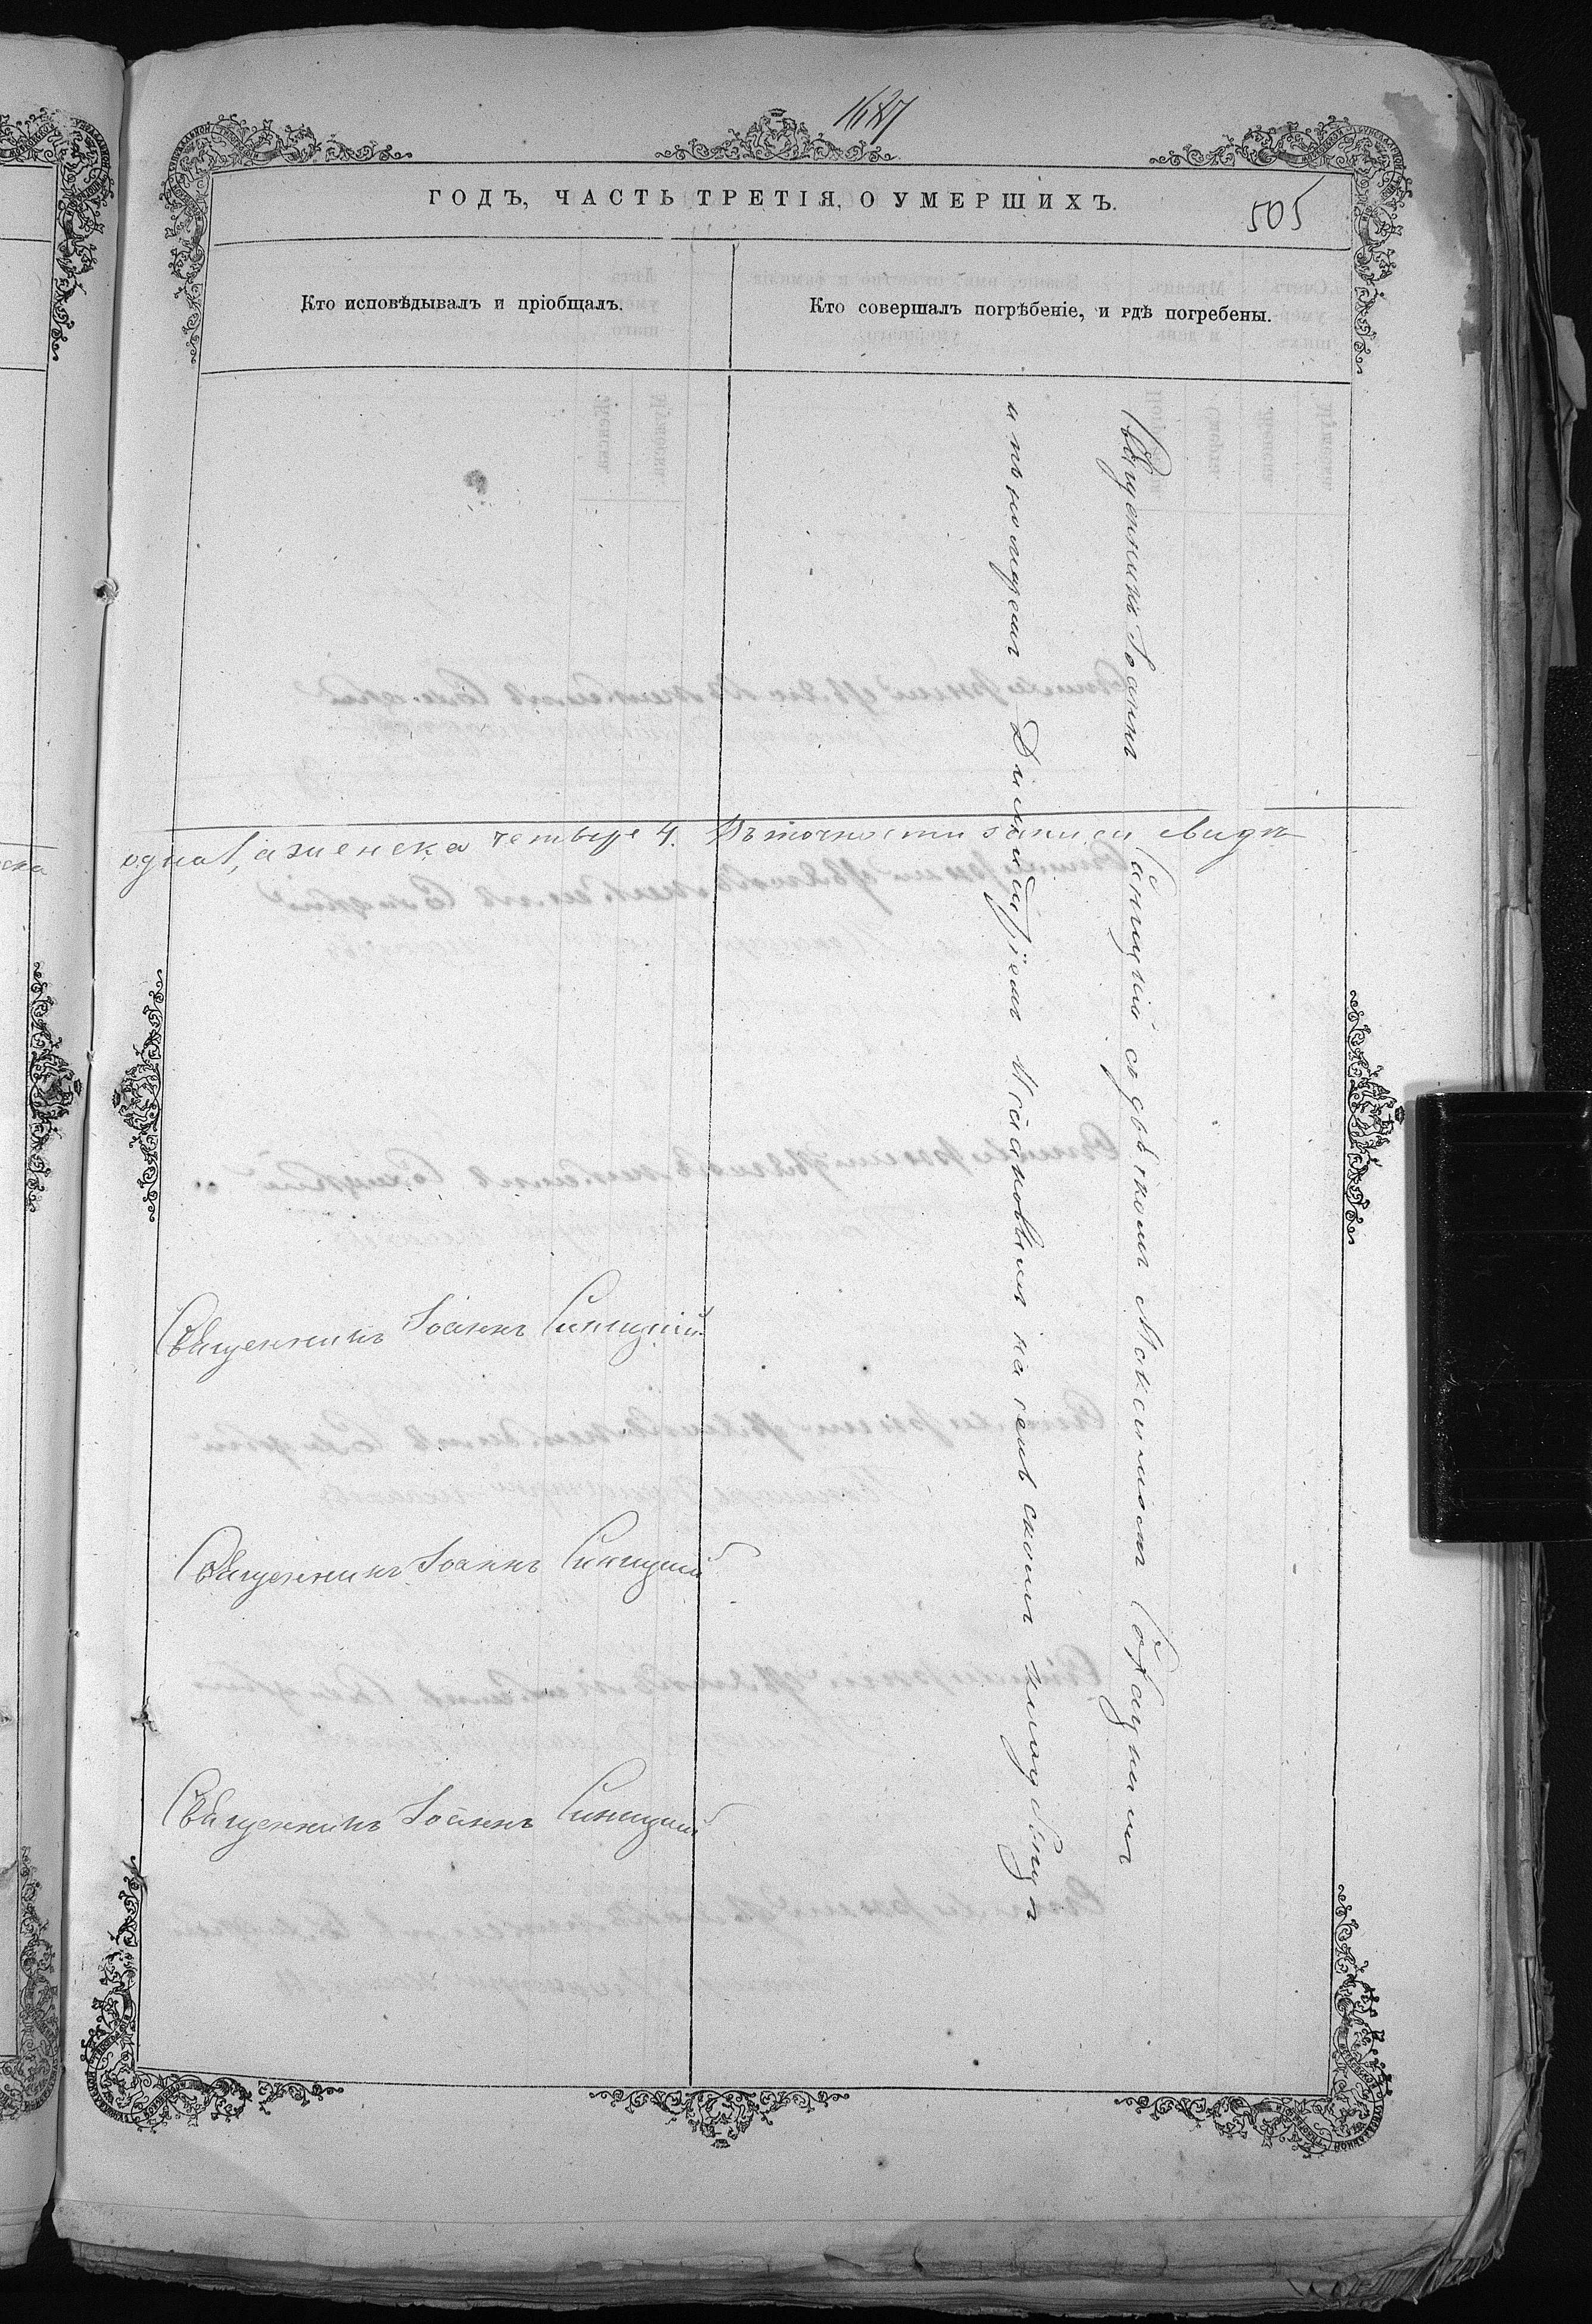 1687
ГОДЪ, ЧАСТЬ ТРЕТІЯ, О УМЕРШИХЪ.
505
Кто исповѣдывалъ и пріобщалъ.
Кто совершалъ погрѣбеніе, и гдѣ погребены.
одна 1, а женска четыре 4. Въ точности записи свидѣ
Священникъ Іоаннъ Синицкій съ дьякомъ Максимомъ
и псаломщ Димитріемъ Исааковымъ на сельскомъ кладбищѣ
Священникъ Іоаннъ Синицкій
Священникъ Іоаннъ Синицкій
Священникъ Іоаннъ Синицкій